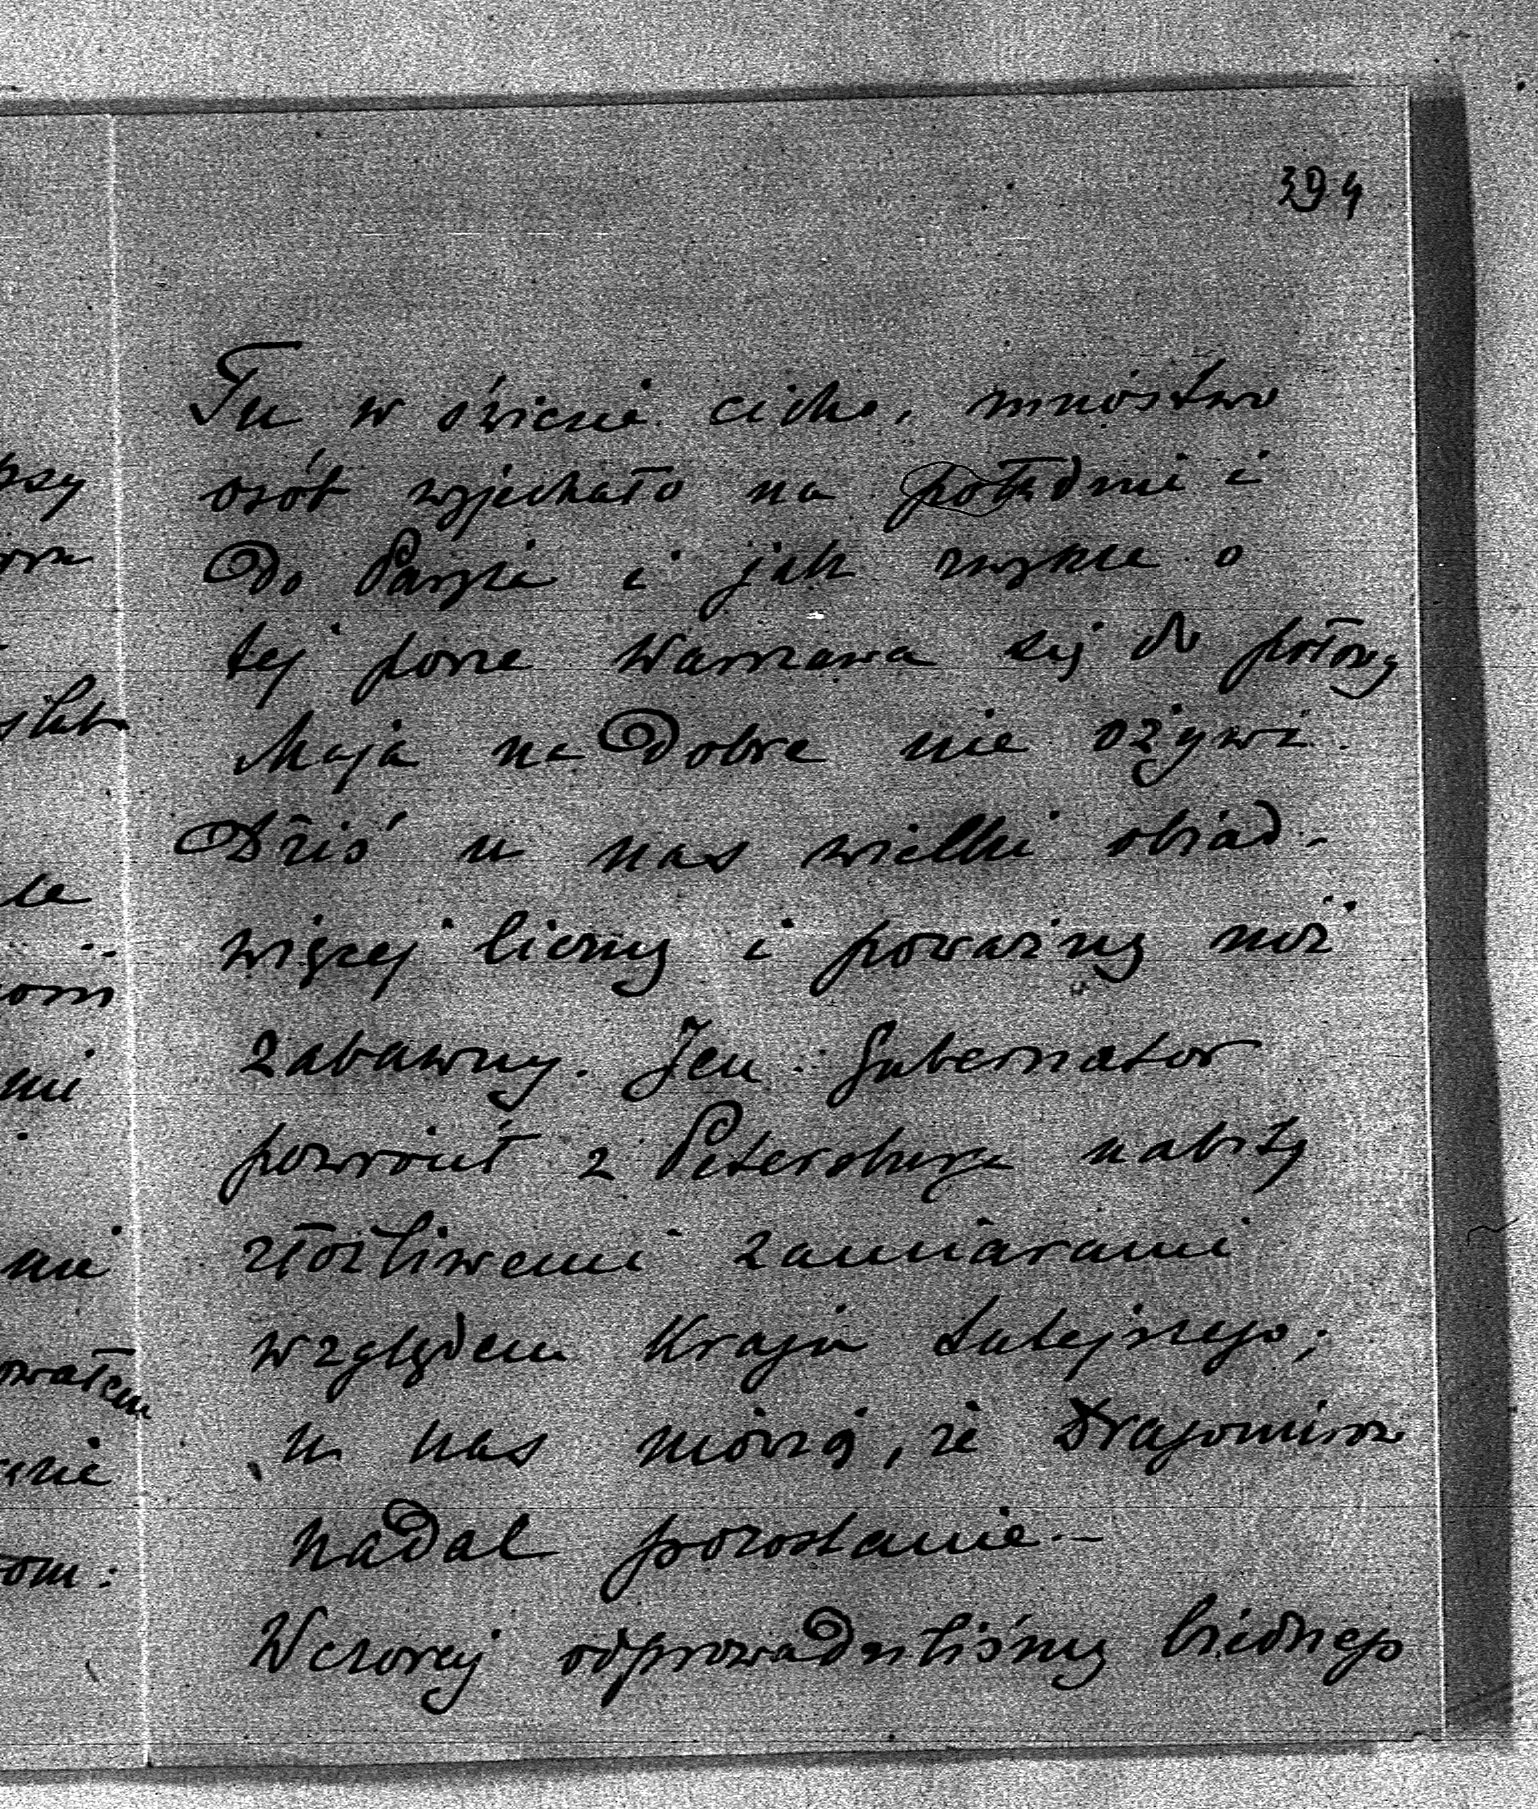 394
Tu w świecie cicho, mnóstwo
osób wyjechało na południe i
do Paryża i jak zwykle o
tej porze Warszawa się do połowy
Maja na dobre nie ożywi.
Dziś u nas wielki obiad,
więcej liczny i poważny niż
zabawny. Jen. Gubernator
powrócił z Petersburga nabity
złośliwemi zamiarami
względem Kraju tutejszego;
u nas mówią, że Dragomirow
nadal pozostanie —
Wczoraj odprowadziliśmy biednego